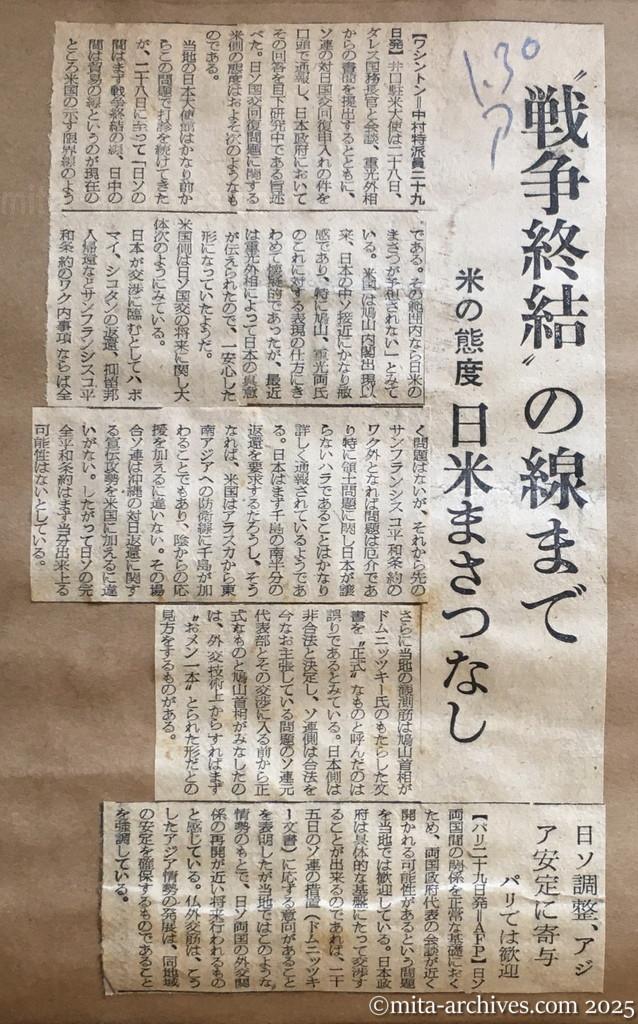 1.30
ア
“戦争終結”の線まで
米の態度
日米まさつなし
【ワシントン＝中村特派員二十九
日発】井口駐米大使は二十八日、
ダレス国務長官と会談、重光外相
からの書簡を提出するとともに、
ソ連の対日国交回復申入れの件を
口頭で通報し、日本政府において
その回答を目下研究中である旨述
べた。日ソ国交回復問題に関する
米側の態度はおよそ次のようなも
のである。
当地の日本大使館はかなり前か
らこの問題で打診を続けてきた
が、二十八日に至って「日ソの
間はまず戦争終結の線、日中の
間は貿易の線というのが現在の
ところ米国の示す限界線のよう
である。その範囲内なら日米の
まさつが予想されない」とみて
いる。米国は鳩山内閣出現以
来、日本の中ソ接近にかなり敏
感であり、特に鳩山、重光両氏
のこれに対する表現の仕方にき
わめて懐疑的であったが、最近
は重光外相によって日本の真意
が伝えられたので、一安心した
形になっていたようだ。
米国側は日ソ国交の将来に関し大
体次のようにみている。
日本が交渉に臨むとしてハ、ボ
マイ、シコタンの返還、抑留邦
人帰還などサンフランシスコ平
和条約のワク内事項ならば全
く問題はないが、それから先の
サンフランシスコ平和条約の
ワク外となれば問題は厄介であ
り特に領土問題に関し日本が譲
らないハラであることはかなり
詳しく通報されているようであ
る。日本はまず千島の南半分の
返還を要求するだろうし、そう
なれば、米国はアラスカから東
南アジアへの防衛線に千島が加
わることでもあり、陰からの応
援を加えるに違いない。その場
合ソ連は沖縄の対日返還に関す
る宣伝攻勢を米国に加えるに違
いがない。したがって日ソの完
全平和条約はまず当分出来上る
可能性はないとしている。
さらに当地の観測筋は鳩山首相が
ドムニッツキー氏のもたらした文
書を“正式”なものと呼んだのは
誤りであるとみている。日本側は
非合法と決定し、ソ連側は合法を
今なお主張している問題のソ連元
代表部とその交渉に入る前から正
式なものと鳩山首相がみなしたの
は、外交技術上からすればまず
“おメン一本”とられた形だとの
見方をするものがある。
日ソ調整、アジ
ア安定に寄与
パリでは歓迎
【パリ二十九日発＝AFP】日ソ
両国間の関係を正常な基礎におく
ため、両国政府代表の会談が近く
開かれる可能性があるという問題
を当地では歓迎している。日本政
府は具体的な基盤にたって交渉す
ることが出来るのであれば、二十
五日のソ連の措置（ドムニッツキ
ー文書）に応ずる意向があること
を表明したが当地ではこのような
情勢のもとで、日ソ両国の外交関
係の再開が近い将来行われるもの
と感じている。仏外交筋は、こう
したアジア情勢の発展は、同地域
の安定を確保するものであること
を強調している。
©mita-archives.com 2025